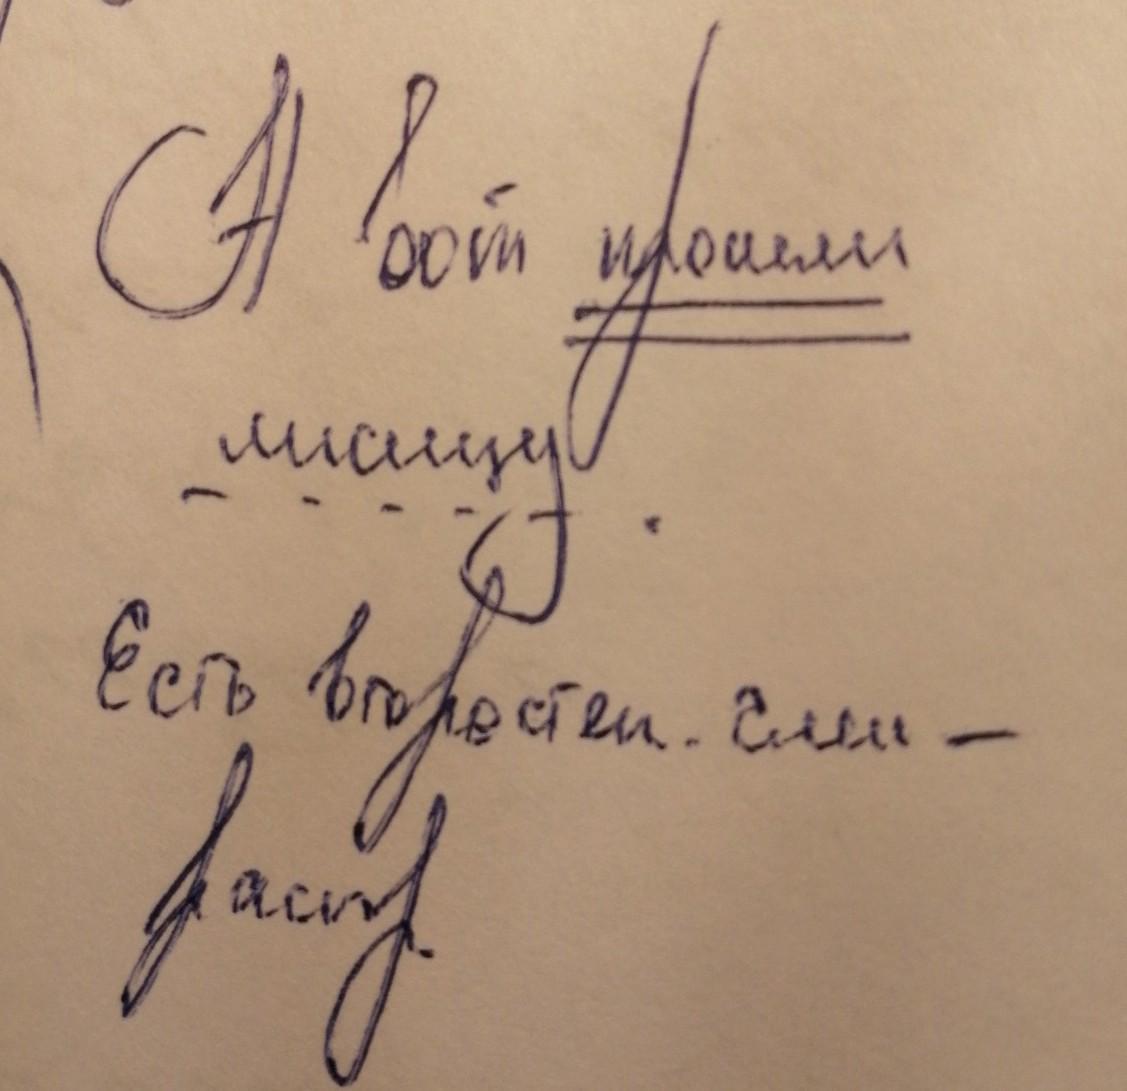 А вот прошли
лисицу.
Есть второстен. члены –
распр.